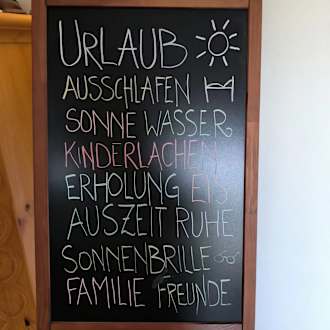 URLAUB
AUSSCHLAFEN
SONNE WASSER
KINDERLACHEN
ERHOLUNG EIS
AUSZEIT RUHE
SONNENBRILLE
FAMILIE FREUNDE